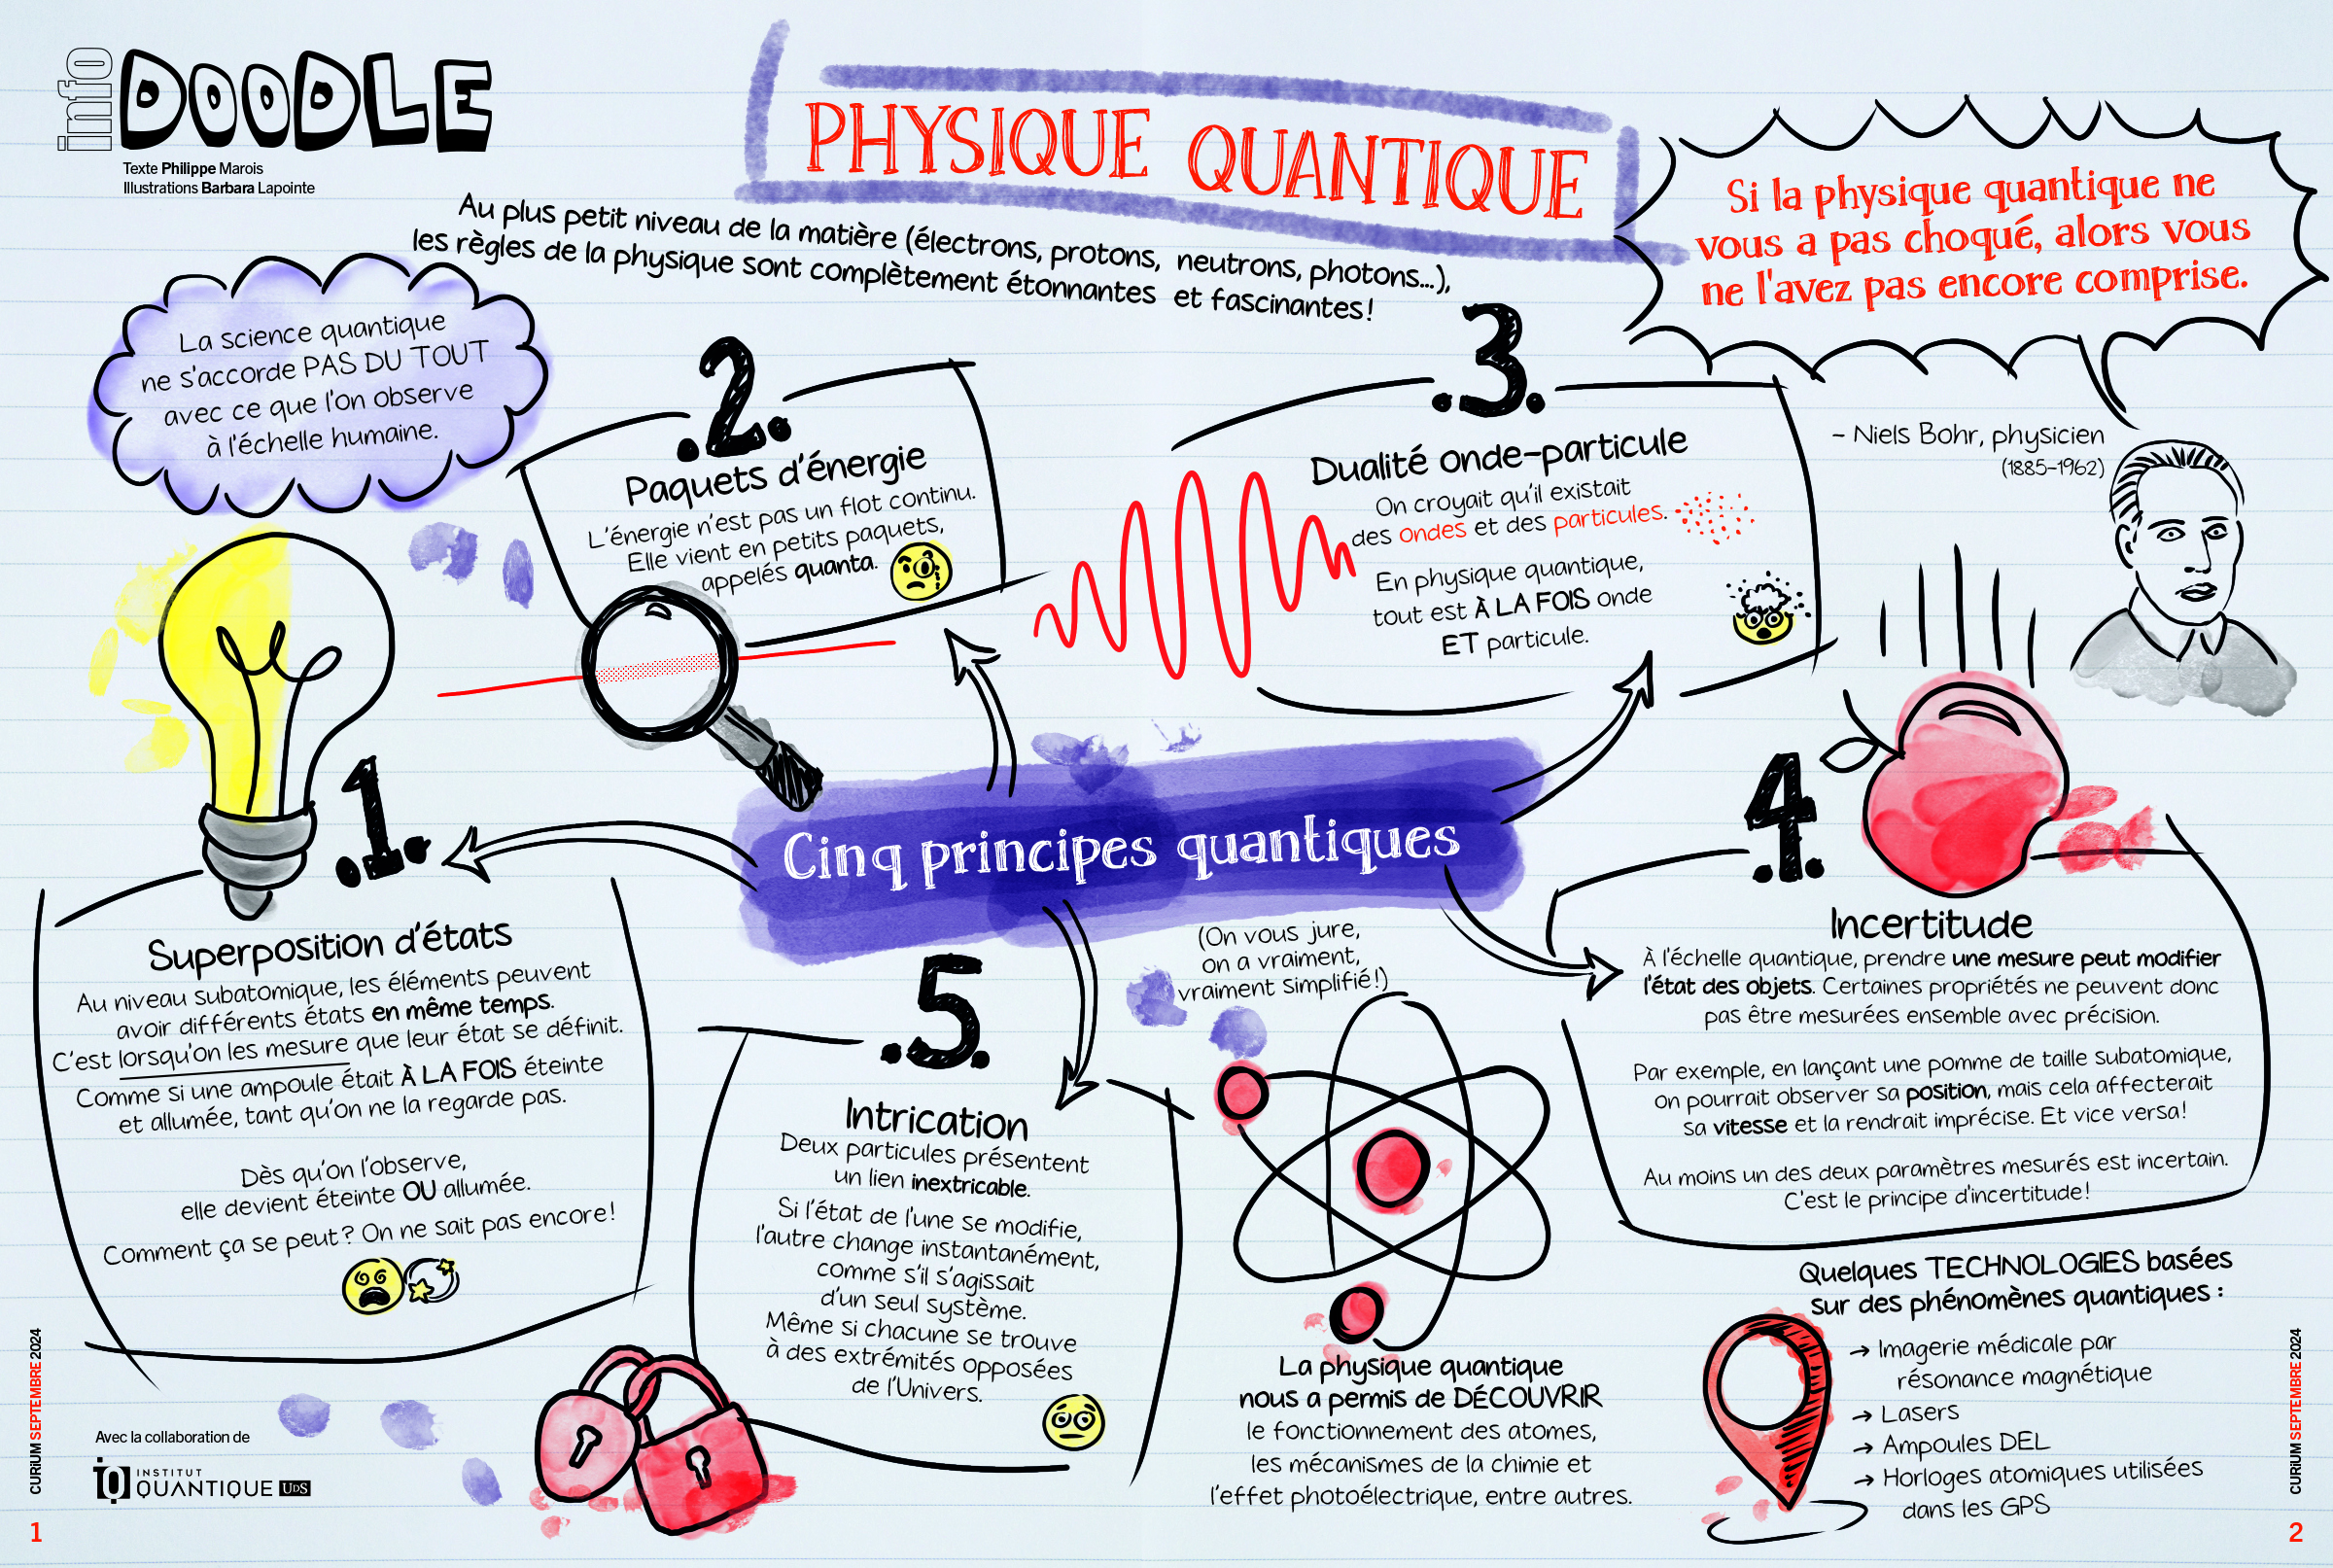 info DOODLE
Texte Philippe Marois
Illustrations Barbara Lapointe
PHYSIQUE QUANTIQUE
Au plus petit niveau de la matière (électrons, protons, neutrons, photons...),
les règles de la physique sont complètement étonnantes et fascinantes!
Si la physique quantique ne
vous a pas choqué, alors vous
ne l'avez pas encore comprise.
– Niels Bohr, physicien
(1885–1962)
La science quantique
ne s'accorde PAS DU TOUT
avec ce que l'on observe
à l'échelle humaine.
Cinq principes quantiques
(On vous jure,
on a vraiment,
vraiment simplifié!)
.1.
Superposition d'états
Au niveau subatomique, les éléments peuvent
avoir différents états en même temps.
C'est lorsqu'on les mesure que leur état se définit.
Comme si une ampoule était À LA FOIS éteinte
et allumée, tant qu'on ne la regarde pas.
Dès qu'on l'observe,
elle devient éteinte OU allumée.
Comment ça se peut? On ne sait pas encore!
.2.
Paquets d'énergie
L'énergie n'est pas un flot continu.
Elle vient en petits paquets,
appelés quanta.
.3.
Dualité onde-particule
On croyait qu'il existait
des ondes et des particules.
En physique quantique,
tout est À LA FOIS onde
ET particule.
.4.
Incertitude
À l'échelle quantique, prendre une mesure peut modifier
l'état des objets. Certaines propriétés ne peuvent donc
pas être mesurées ensemble avec précision.
Par exemple, en lançant une pomme de taille subatomique,
on pourrait observer sa position, mais cela affecterait
sa vitesse et la rendrait imprécise. Et vice versa!
Au moins un des deux paramètres mesurés est incertain.
C'est le principe d'incertitude!
.5.
Intrication
Deux particules présentent
un lien inextricable.
Si l'état de l'une se modifie,
l'autre change instantanément,
comme s'il s'agissait
d'un seul système.
Même si chacune se trouve
à des extrémités opposées
de l'Univers.
La physique quantique
nous a permis de DÉCOUVRIR
le fonctionnement des atomes,
les mécanismes de la chimie et
l'effet photoélectrique, entre autres.
Quelques TECHNOLOGIES basées
sur des phénomènes quantiques :
→ Imagerie médicale par
résonance magnétique
→ Lasers
→ Ampoules DEL
→ Horloges atomiques utilisées
dans les GPS
Avec la collaboration de
iQ INSTITUT
QUANTIQUE UdS
CURIUM SEPTEMBRE 2024
1
CURIUM SEPTEMBRE 2024
2